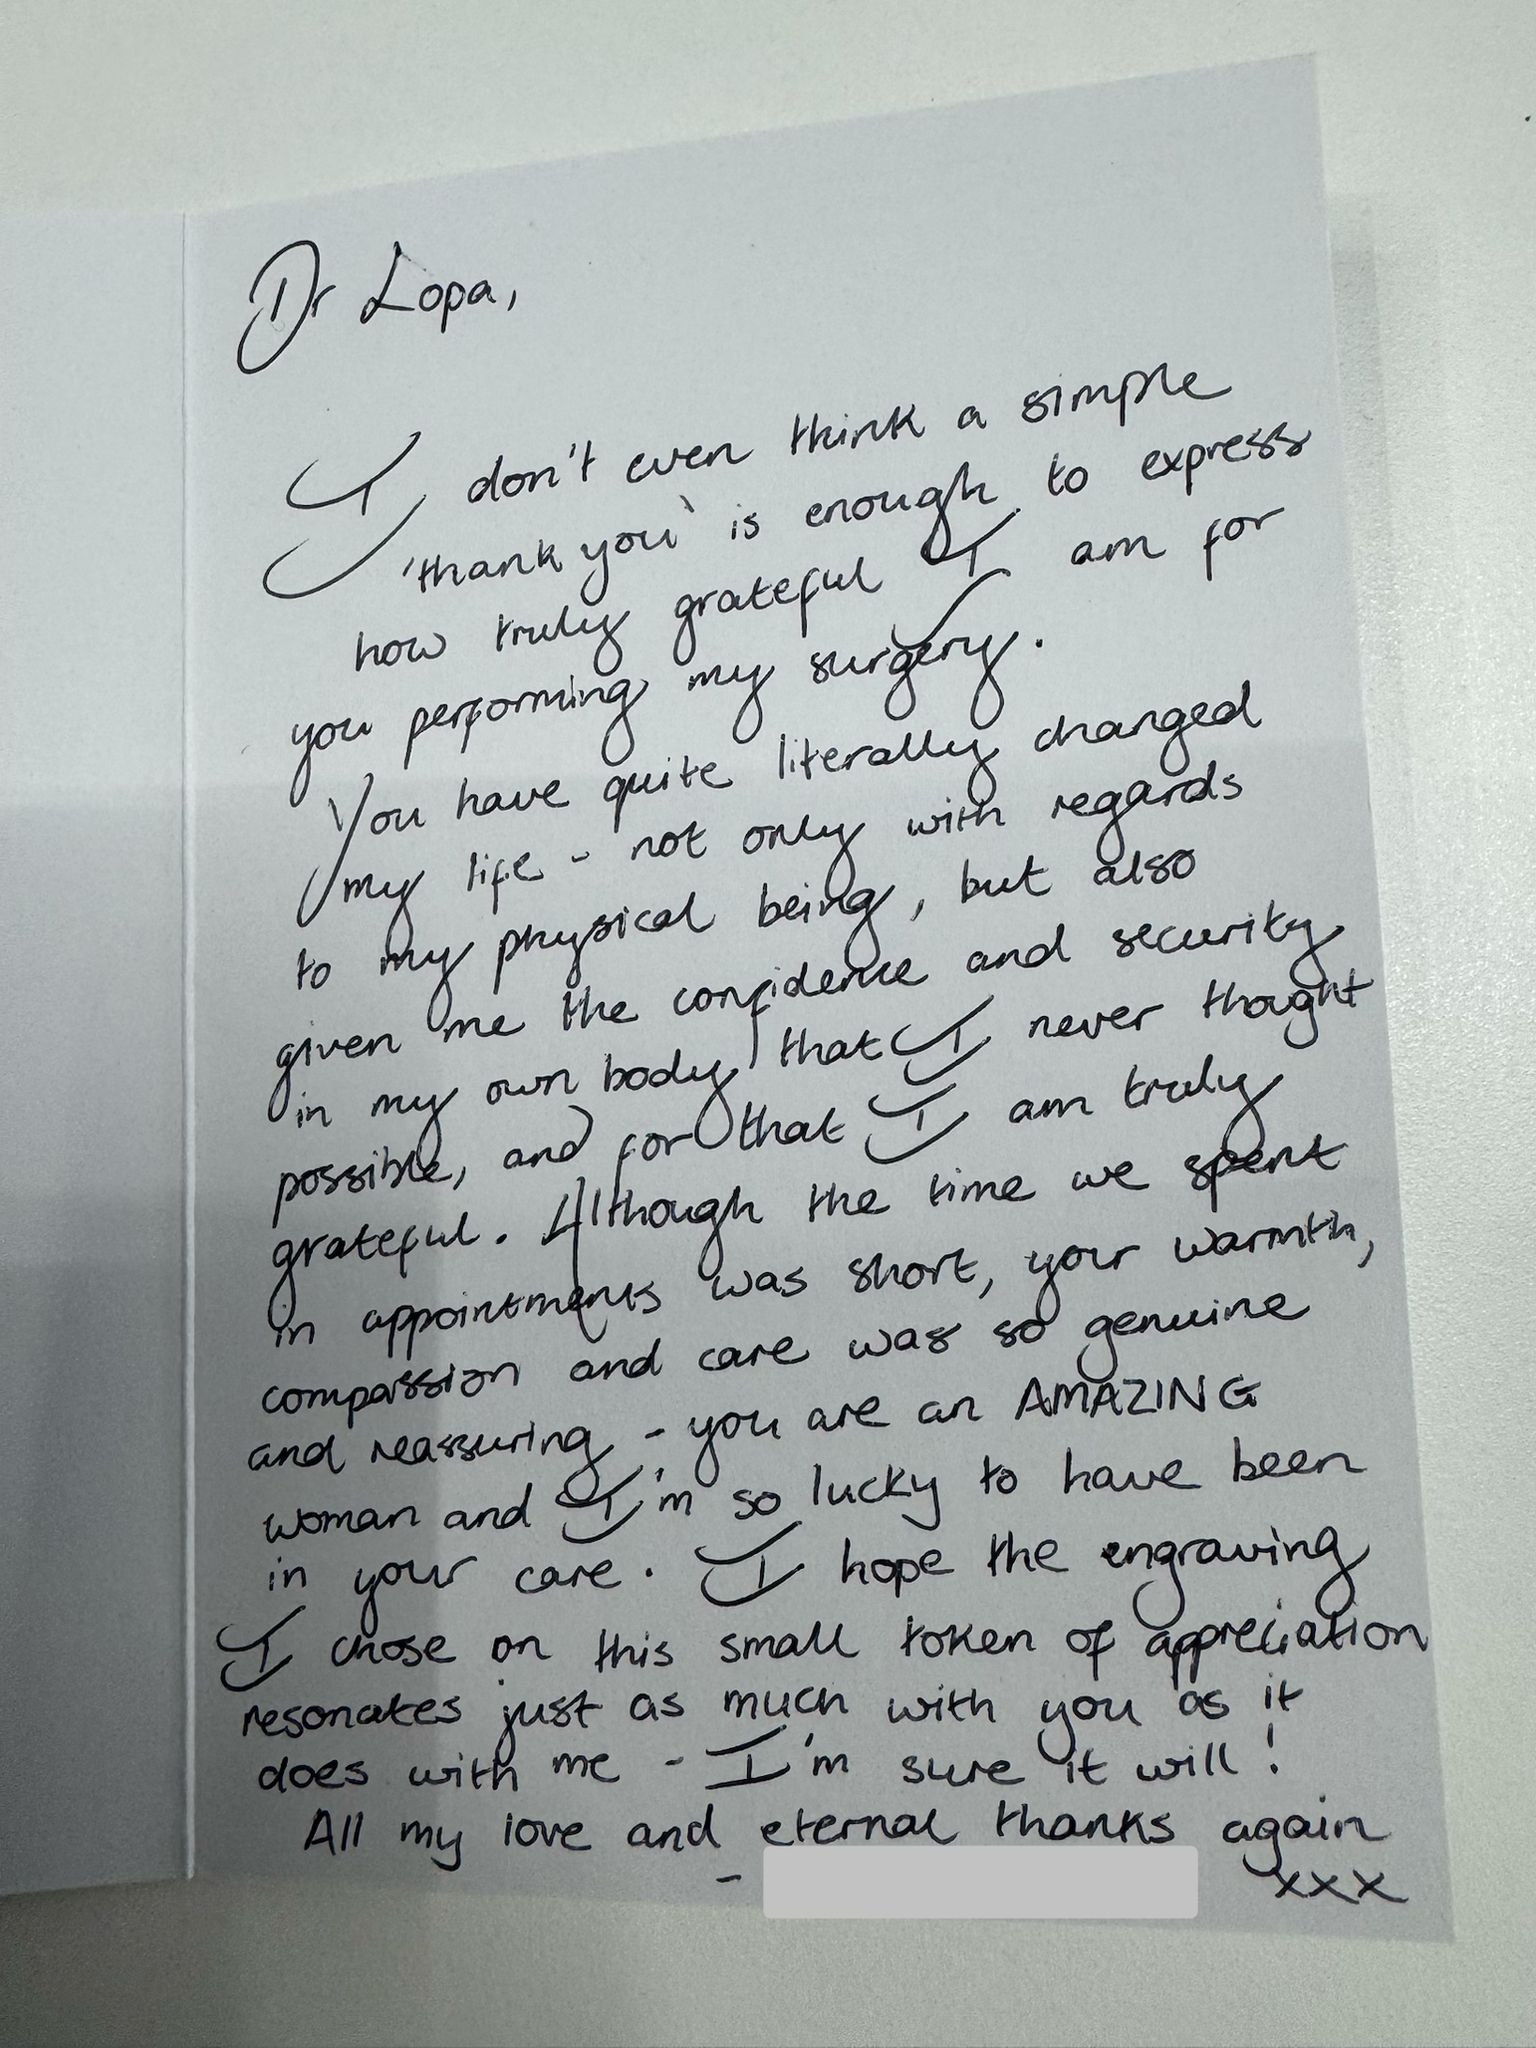 Dr Lopa,
I don't even think a simple
'thank you' is enough to express
how truly grateful I am for
you performing my surgery.
You have quite literally changed
my life - not only with regards
to my physical being, but also
given me the confidence and security
in my own body that I never thought
possible, and for that I am truly
grateful. Although the time we spent
in appointments was short, your warmth,
compassion and care was so genuine
and reassuring - you are an AMAZING
woman and I'm so lucky to have been
in your care. I hope the engraving
I chose on this small token of appreciation
resonates just as much with you as it
does with me - I'm sure it will!
All my love and eternal thanks again
- xxx